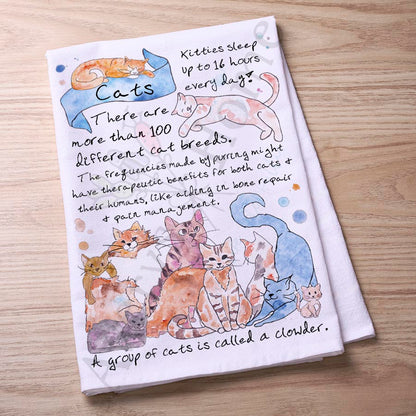 Cats
Kitties sleep
up to 16 hours
every day!
There are
more than 100
different cat breeds.
The frequencies made by purring might
have therapeutic benefits for both cats &
their humans, like aiding in bone repair
& pain management.
A group of cats is called a clowder.